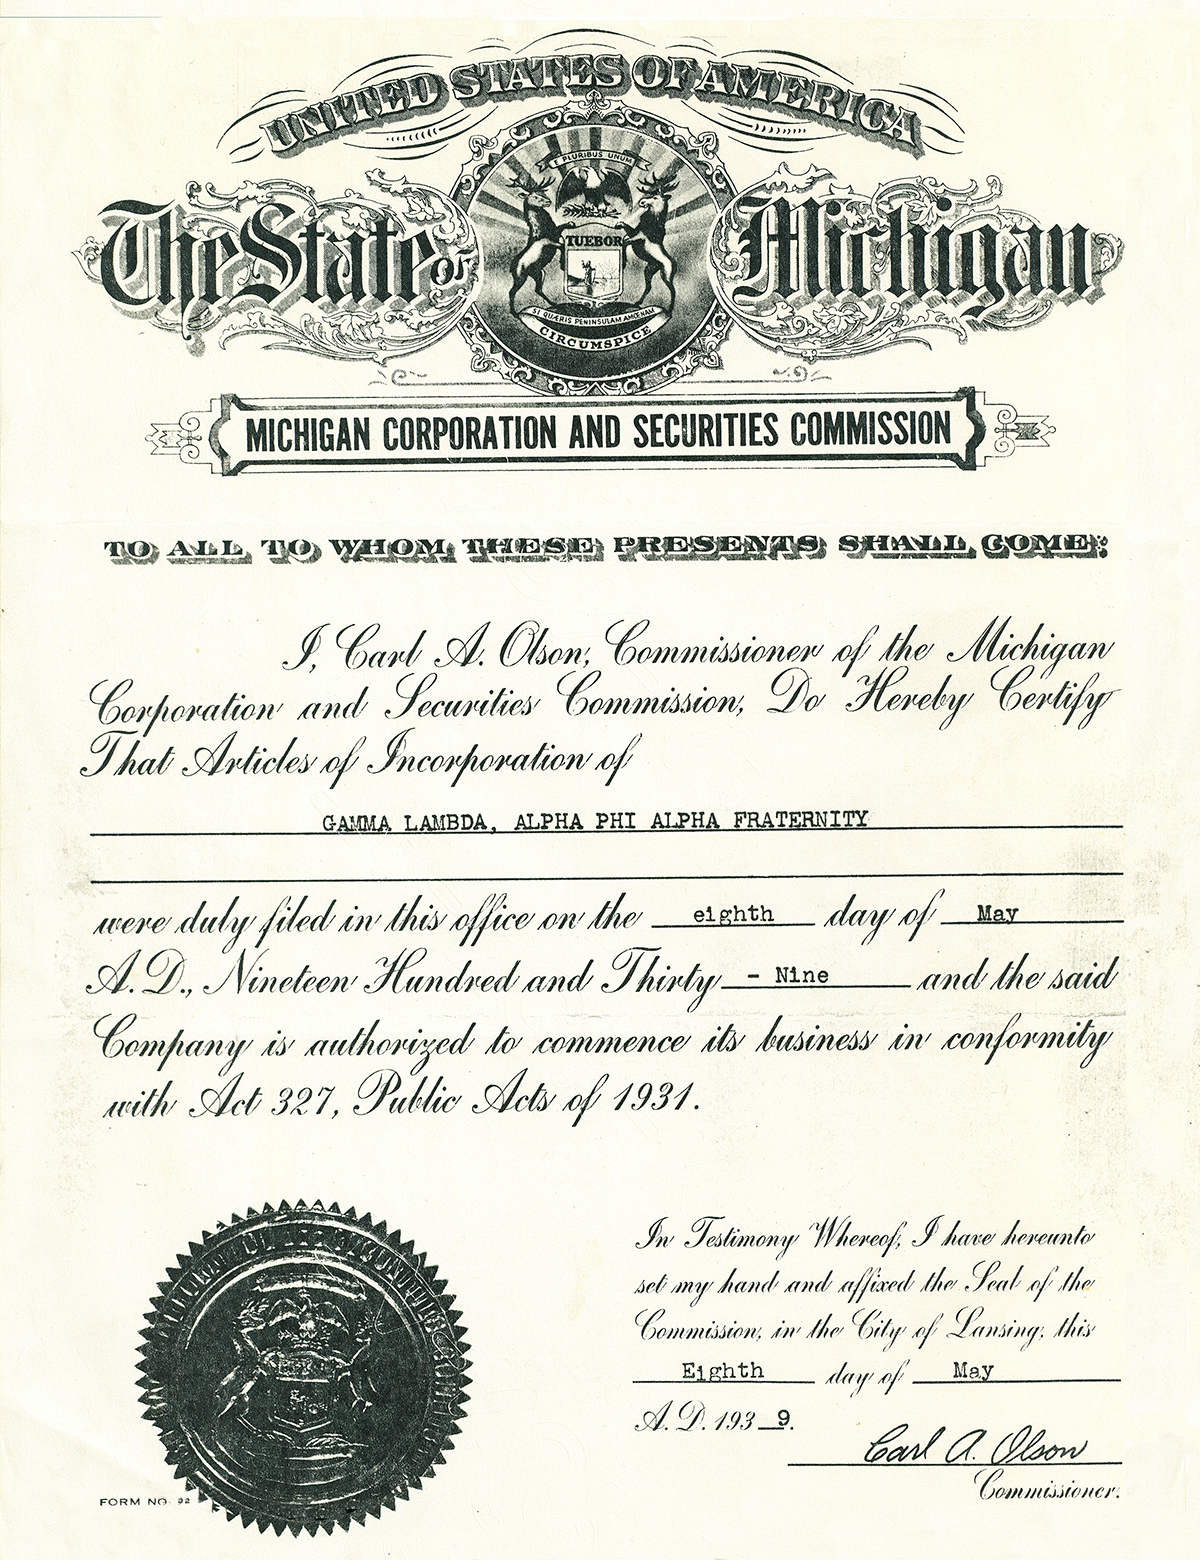 UNITED STATES OF AMERICA
The State of Michigan
E PLURIBUS UNUM
TUEBOR
SI QUÆRIS PENINSULAM AMŒNAM
CIRCUMSPICE
MICHIGAN CORPORATION AND SECURITIES COMMISSION
TO ALL TO WHOM THESE PRESENTS SHALL COME:
I, Carl A. Olson, Commissioner of the Michigan
Corporation and Securities Commission, Do Hereby Certify
That Articles of Incorporation of
GAMMA LAMBDA, ALPHA PHI ALPHA FRATERNITY
were duly filed in this office on the eighth day of May
A.D., Nineteen Hundred and Thirty - Nine and the said
Company is authorized to commence its business in conformity
with Act 327, Public Acts of 1931.
In Testimony Whereof, I have hereunto
set my hand and affixed the Seal of the
Commission, in the City of Lansing, this
Eighth day of May
A.D. 193 9.
Carl A. Olson
Commissioner.
FORM NO.